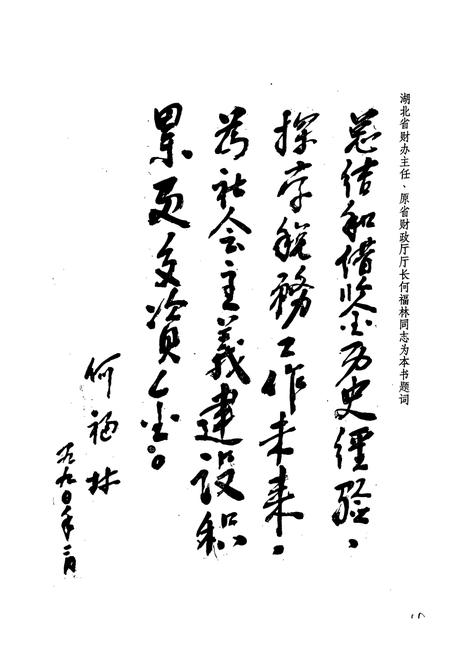 湖北省财办主任、原省财政厅厅长何福林同志为本书题词
总结和借鉴历史经验，
探索税務工作未来，
为社会主義建設积
累更多資金。
何福林
一九九〇年二月